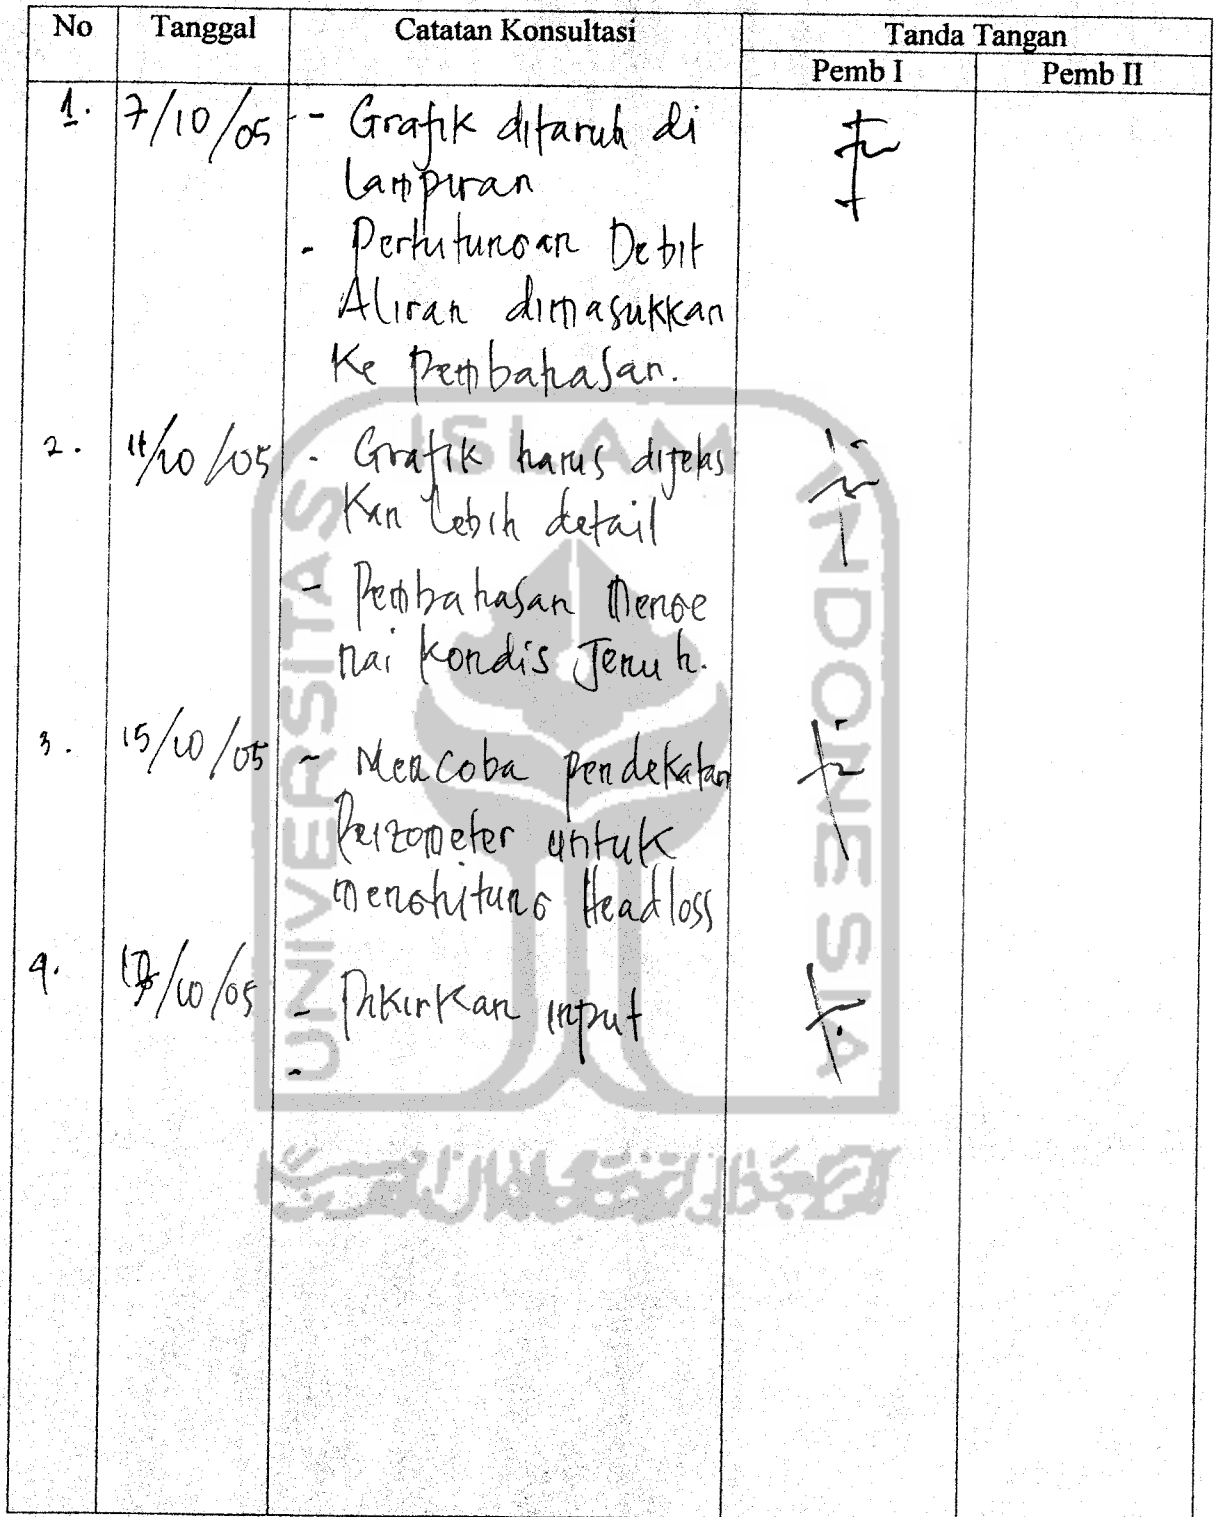 No Tanggal Catatan Konsultasi Tanda Tangan
Pemb I Pemb II
1. 7/10/05 - Grafik ditaruh di
Lampiran
- Perhitungan Debit
Aliran dimasukkan
Ke Pembahasan.
2. 11/10/05 - Grafik harus dijelas
Kan Lebih detail
- Pembahasan Menge
nai Kondis Jenuh.
3. 15/10/05 - Mencoba pendekatan
Peizometer untuk
menghitung Headloss
4. /10/05 - Pikirkan input
-
UNIVERSITAS
ISLAM
INDONESIA